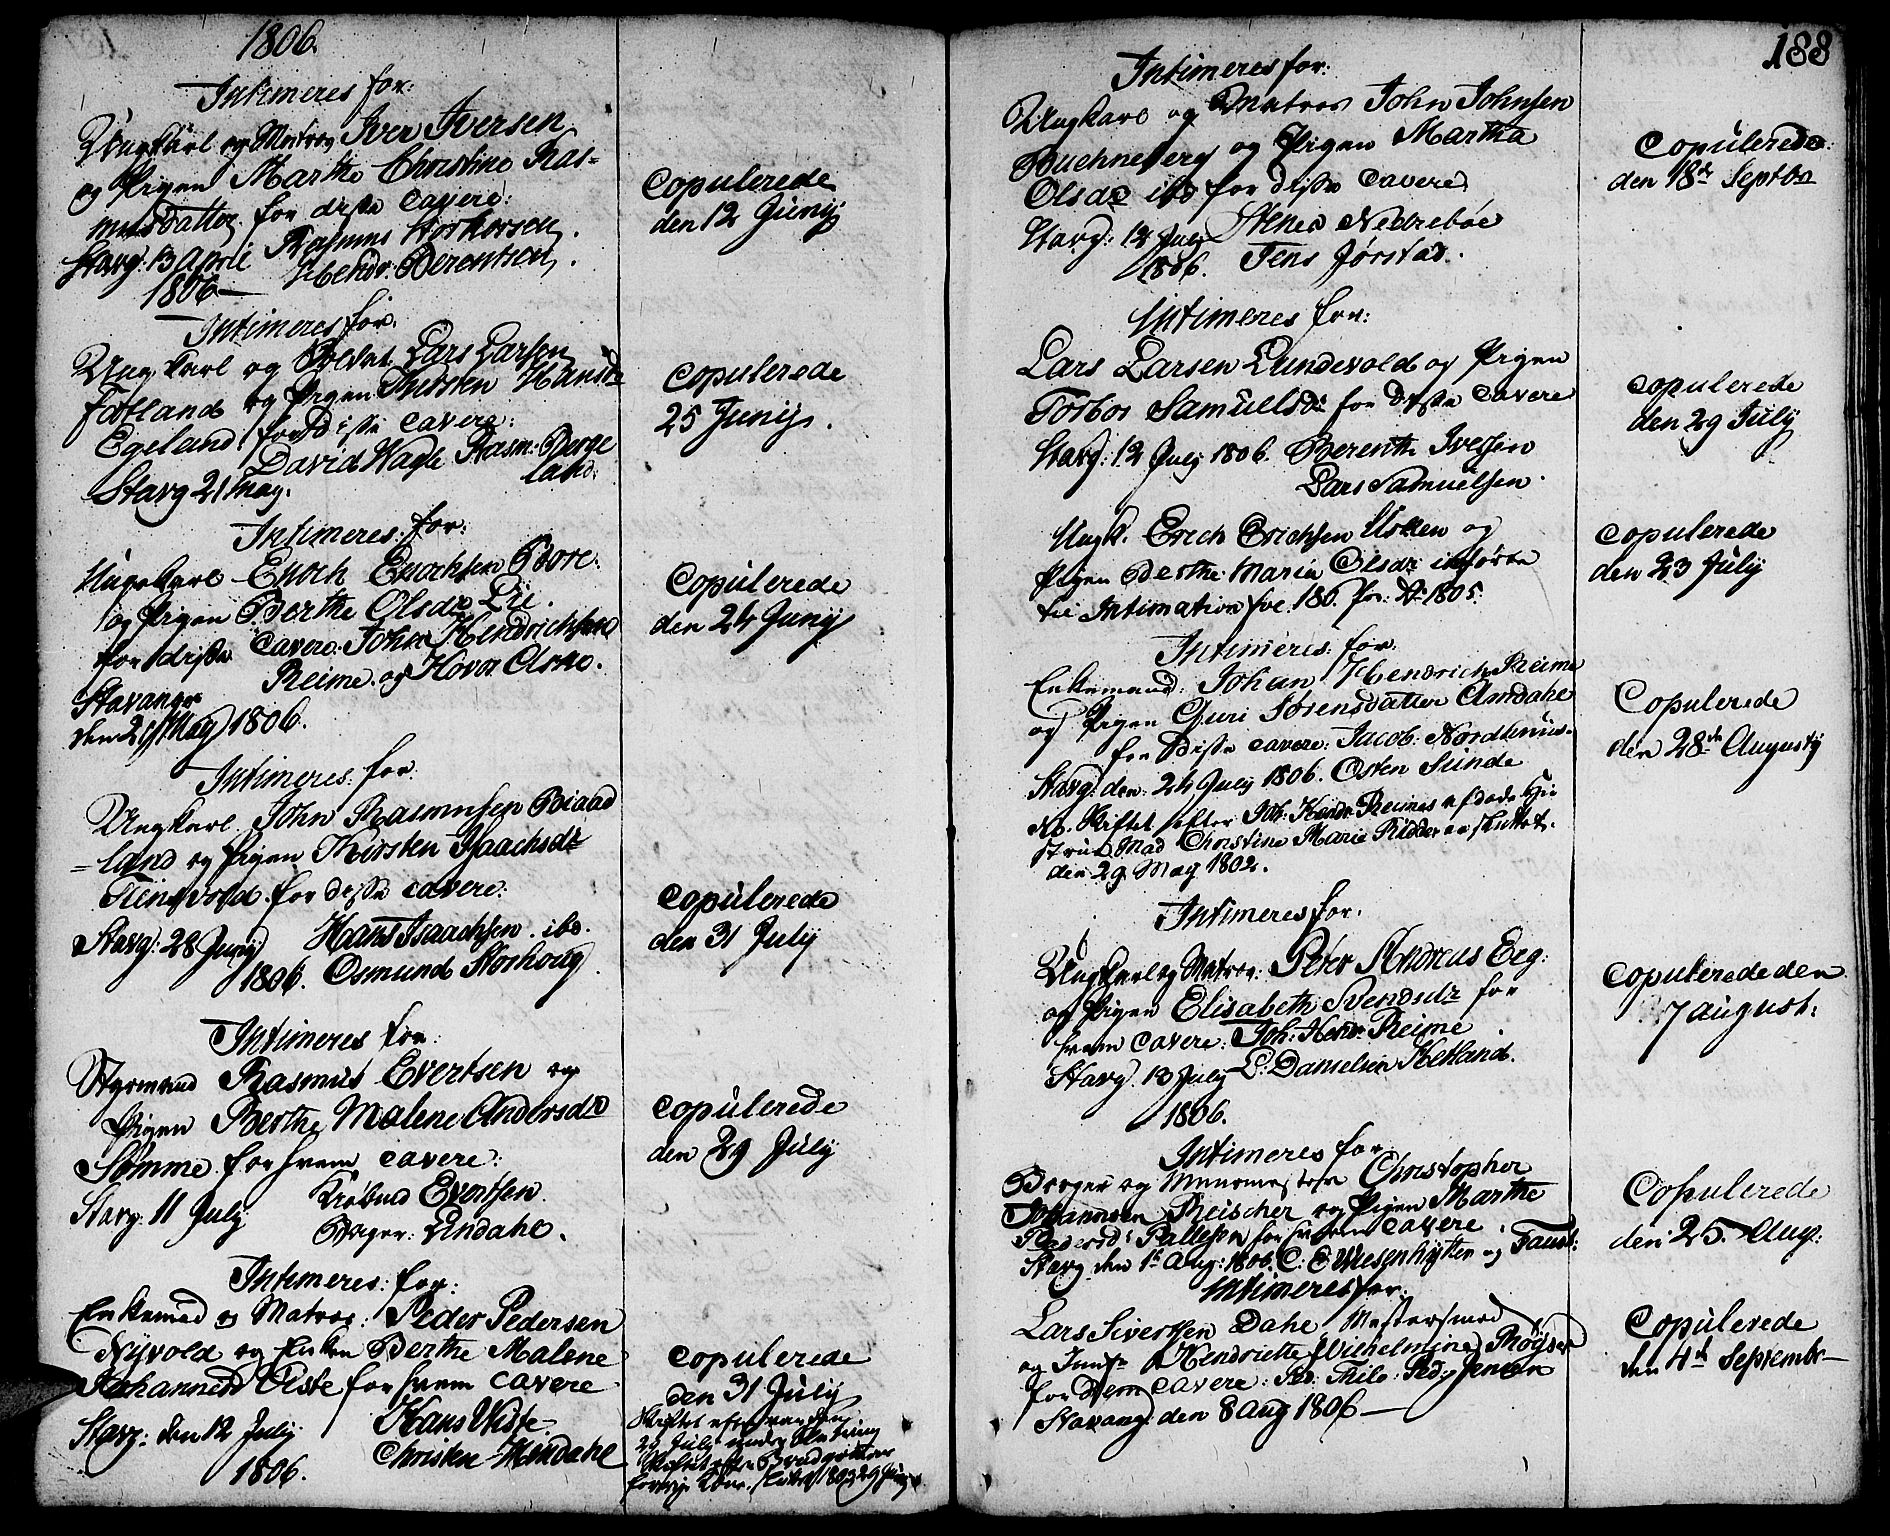 1806.
Intimeres for:
Ungkarl og Matros Iver Iversen
og Pigen Marthe Christine Ras-
musdatter. for disse cavere:
Stavg: 13 April Rasmus Storkersen.
1806 — Hendr: Berentsen.
Copulerede
den 12 Junij
Intimeres for:
Ungkarl og Soldat Lars Larsen
Fotland og Pigen Kirsten Hansdr
Egeland for Disse cavere:
David Wagle Rasm: Berge
land.
Stavg 21 May.
Copulerede
25 Junij.
Intimeres: for:
Ungekarl Enoch Enochsen Bore:
og Pigen Berthe Olsdr Lie.
for disse Cavere: Johan Hendrichsen
Reime. og Hover Olsen.
Stavanger
den 21 May 1806.
Copulerede
den 24 Junij
Intimeres: for
Ungkarl John Rasmusen Biaad
=land og Pigen Kirsten Isaachsdr
Stensvold. for disse cavere:
Stavg: 28 Junij Hans Isaachsen. ibd.
1806. Osmund Storhoug.
Copulerede
den 31 Julij
Intimeres for:
Styrmand Rasmus Evertsen og
Pigen Berthe Malene Andersdr
Sømme. for hvem cavere:
Stavg: 11 July Evertsen.
Endahl.
Copulerede
den 29 Julij
Intimeres: for:
Enkemand og Matros: Peder Pedersen
Nyvold og Enken Berthe Malene
Johannesd for hvem cavere
Stavg: den 12 July Hans Wiste
1806. Christen Mændahl
Copulerede
den 31 Julij
Skiftet efter
1803 29 Junij
188
Intimeres for:
Ungkarl og Matros John Johnsen
Buchneberg og Pigen Martha
Olsdr ibd for disse cavere
Stavg: 12 July Stener Nedrebøe
1806. Jens Jørstad.
Copulerede
den 18de Septbr
Intimeres for:
Lars Larsen Lundevold og Pigen
Torbor Samuelsdr for disse cavere
Stavg: 12 July 1806. Berenth Iversen
Lars Samuelsen.
Copulerede
den 29 Julij
Ungk. Erich Erichsen Usken og
Pigen Berthe Maria Olsdr indførte
til Intimation fol. 186. pro: Ao 1805.
Copulerede
den 23 Julij
Intimeres: for:
Enkemand: Johan Hendrich Reime
og Pigen Guri Sørensdatter Amdahl
for Disse cavere: Jacob: Nordhuus-
Stavg: den: 24 July 1806. Osten Sunde
Nb. Skiftet efter Joh: Hendr: Reimes afdøde Hu-
strue Mad Christine Marie Ridder er sluttet.
den 29. May 1802.
Copulerede
den 28de Augustij
Intimeres for:
Ungkarl og Matros: Peter Andreas Eeg:
og Pigen Elisabeth Svendsdr for
hvem cavere: Joh: Hendr: Reime
Stavg. 13 July L: Danielsen Ketland.
1806.
Copulerede den
7 august:
Intimeres for
Borger og Muurmester Christopher
Johannesen Reischer og Pigen Marthe
Pedersdr Pallesen for hvem cavere.
Stavg den 1te Aug: 1806. C: E Wiesenhytten og Faust:
Copulerede
den 25. Aug:
Intimeres for:
Lars Sivertsen Dahl Mestersmed
og Jomfr Hendriette Wilhelmine Røyser
for Dem cavere: Ped: Thilo: Ped: Jensen
Stavang: den 8 Aug 1806 —
Copulerede
den 4de Septembr —